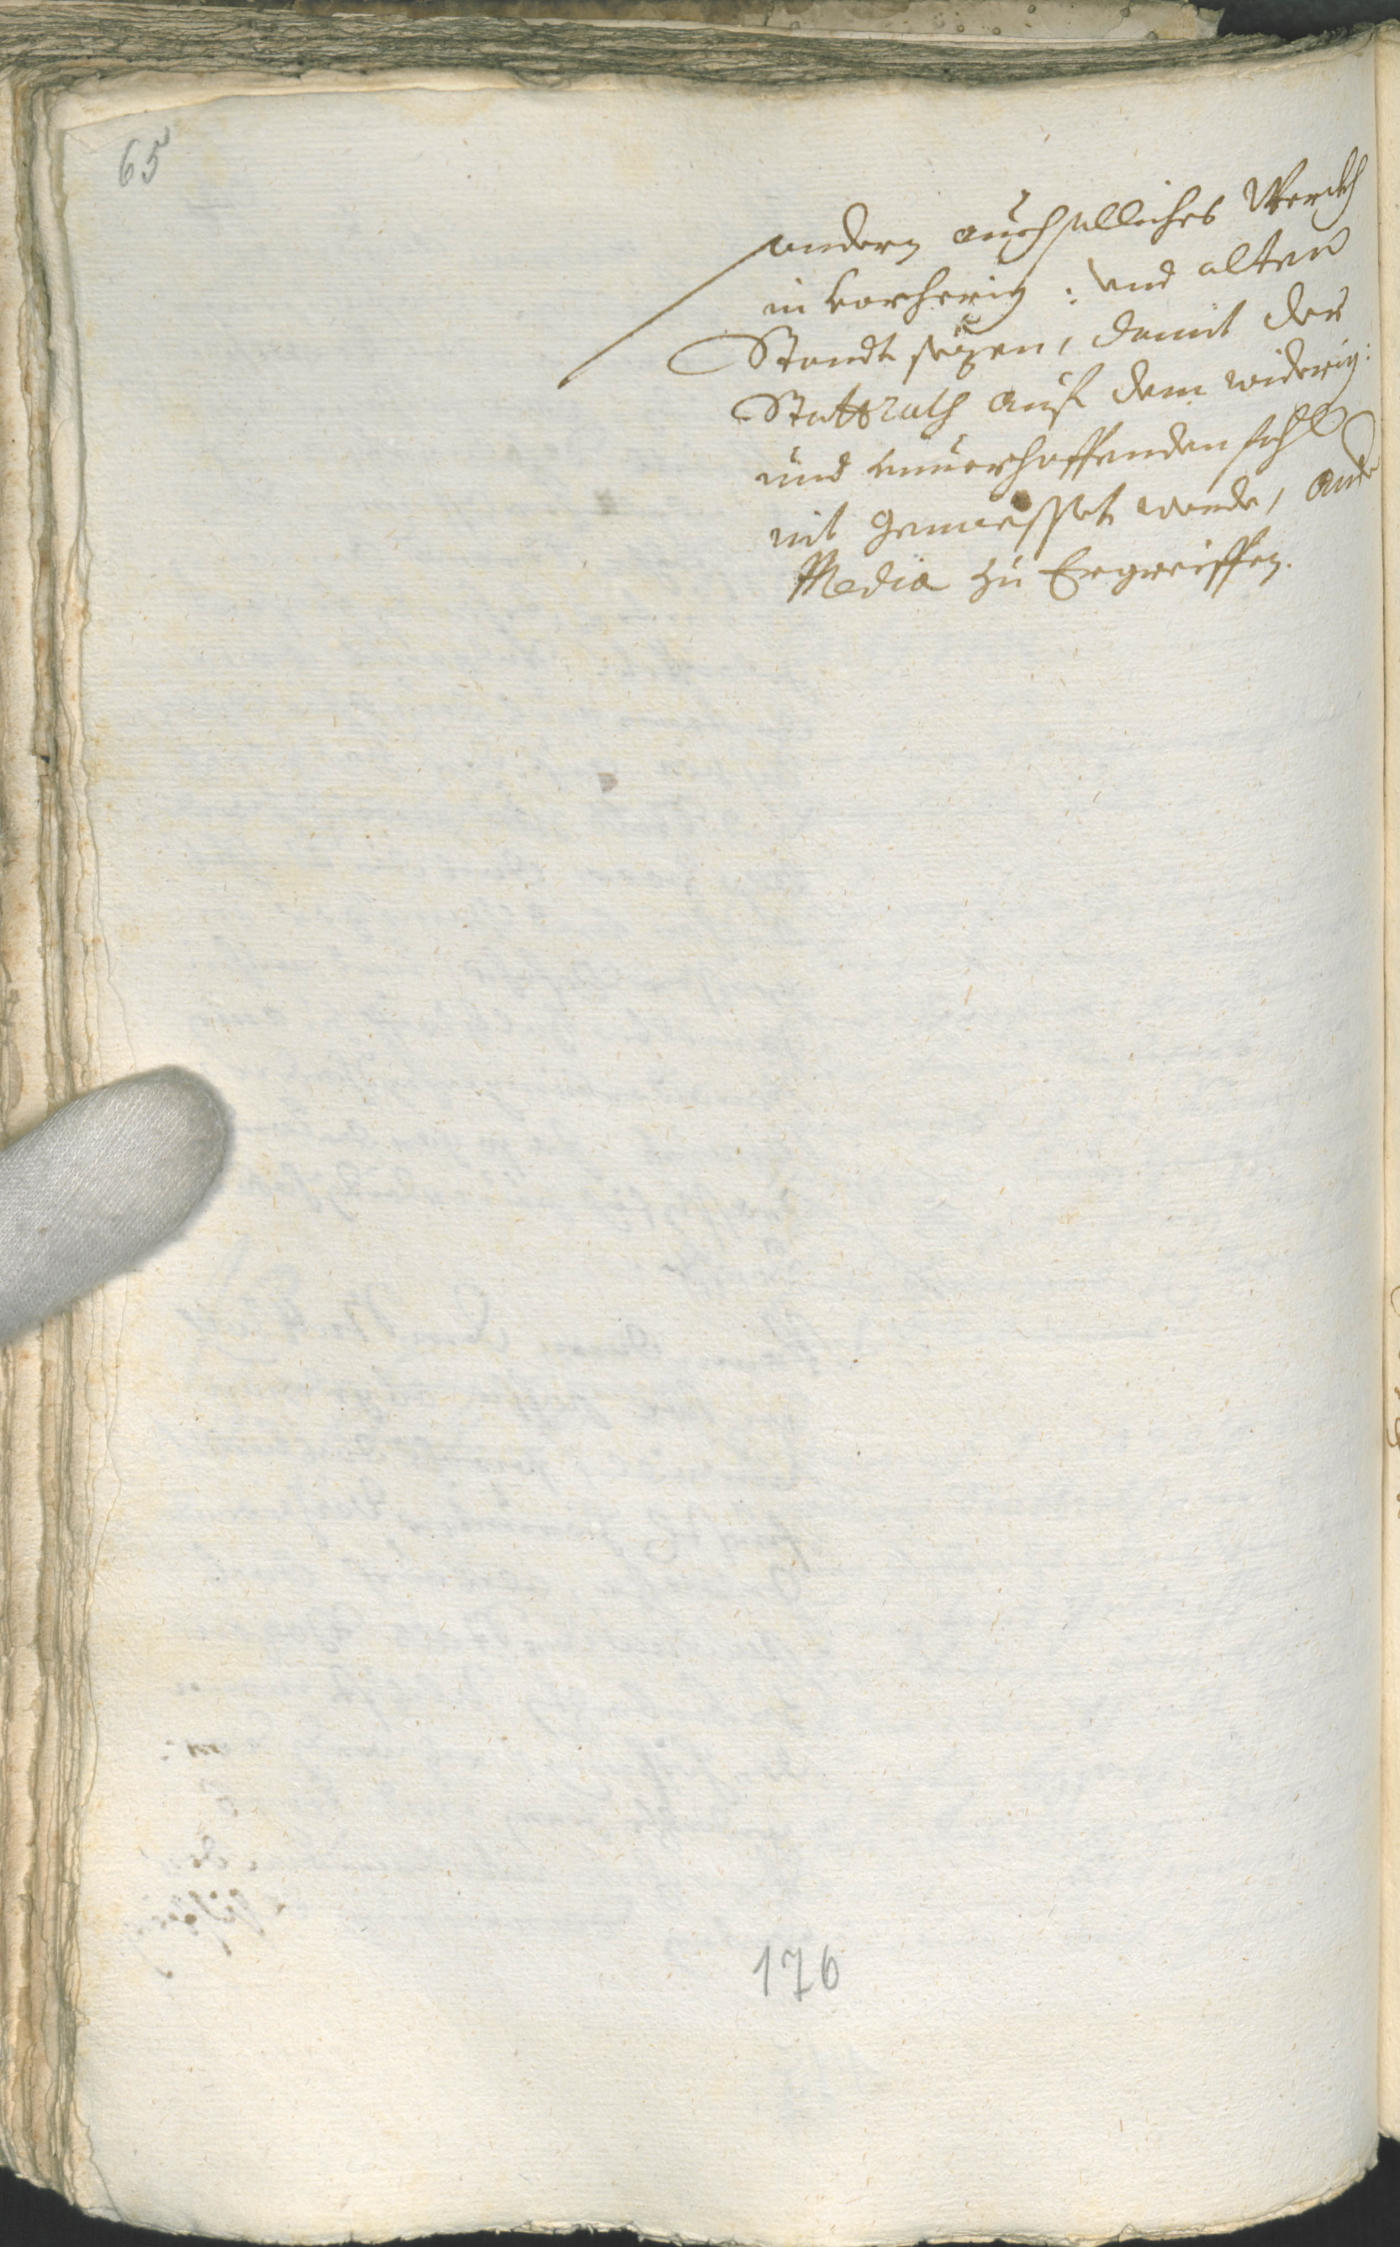 65
andern auch solliches Werckh
in vorherig: und alten
Standt sezen, damit der
Stattrath auf dem widerig:
und unverhoffenden fahl
nit gemiessigt werde, ande
Media zu Ergreiffen.
176